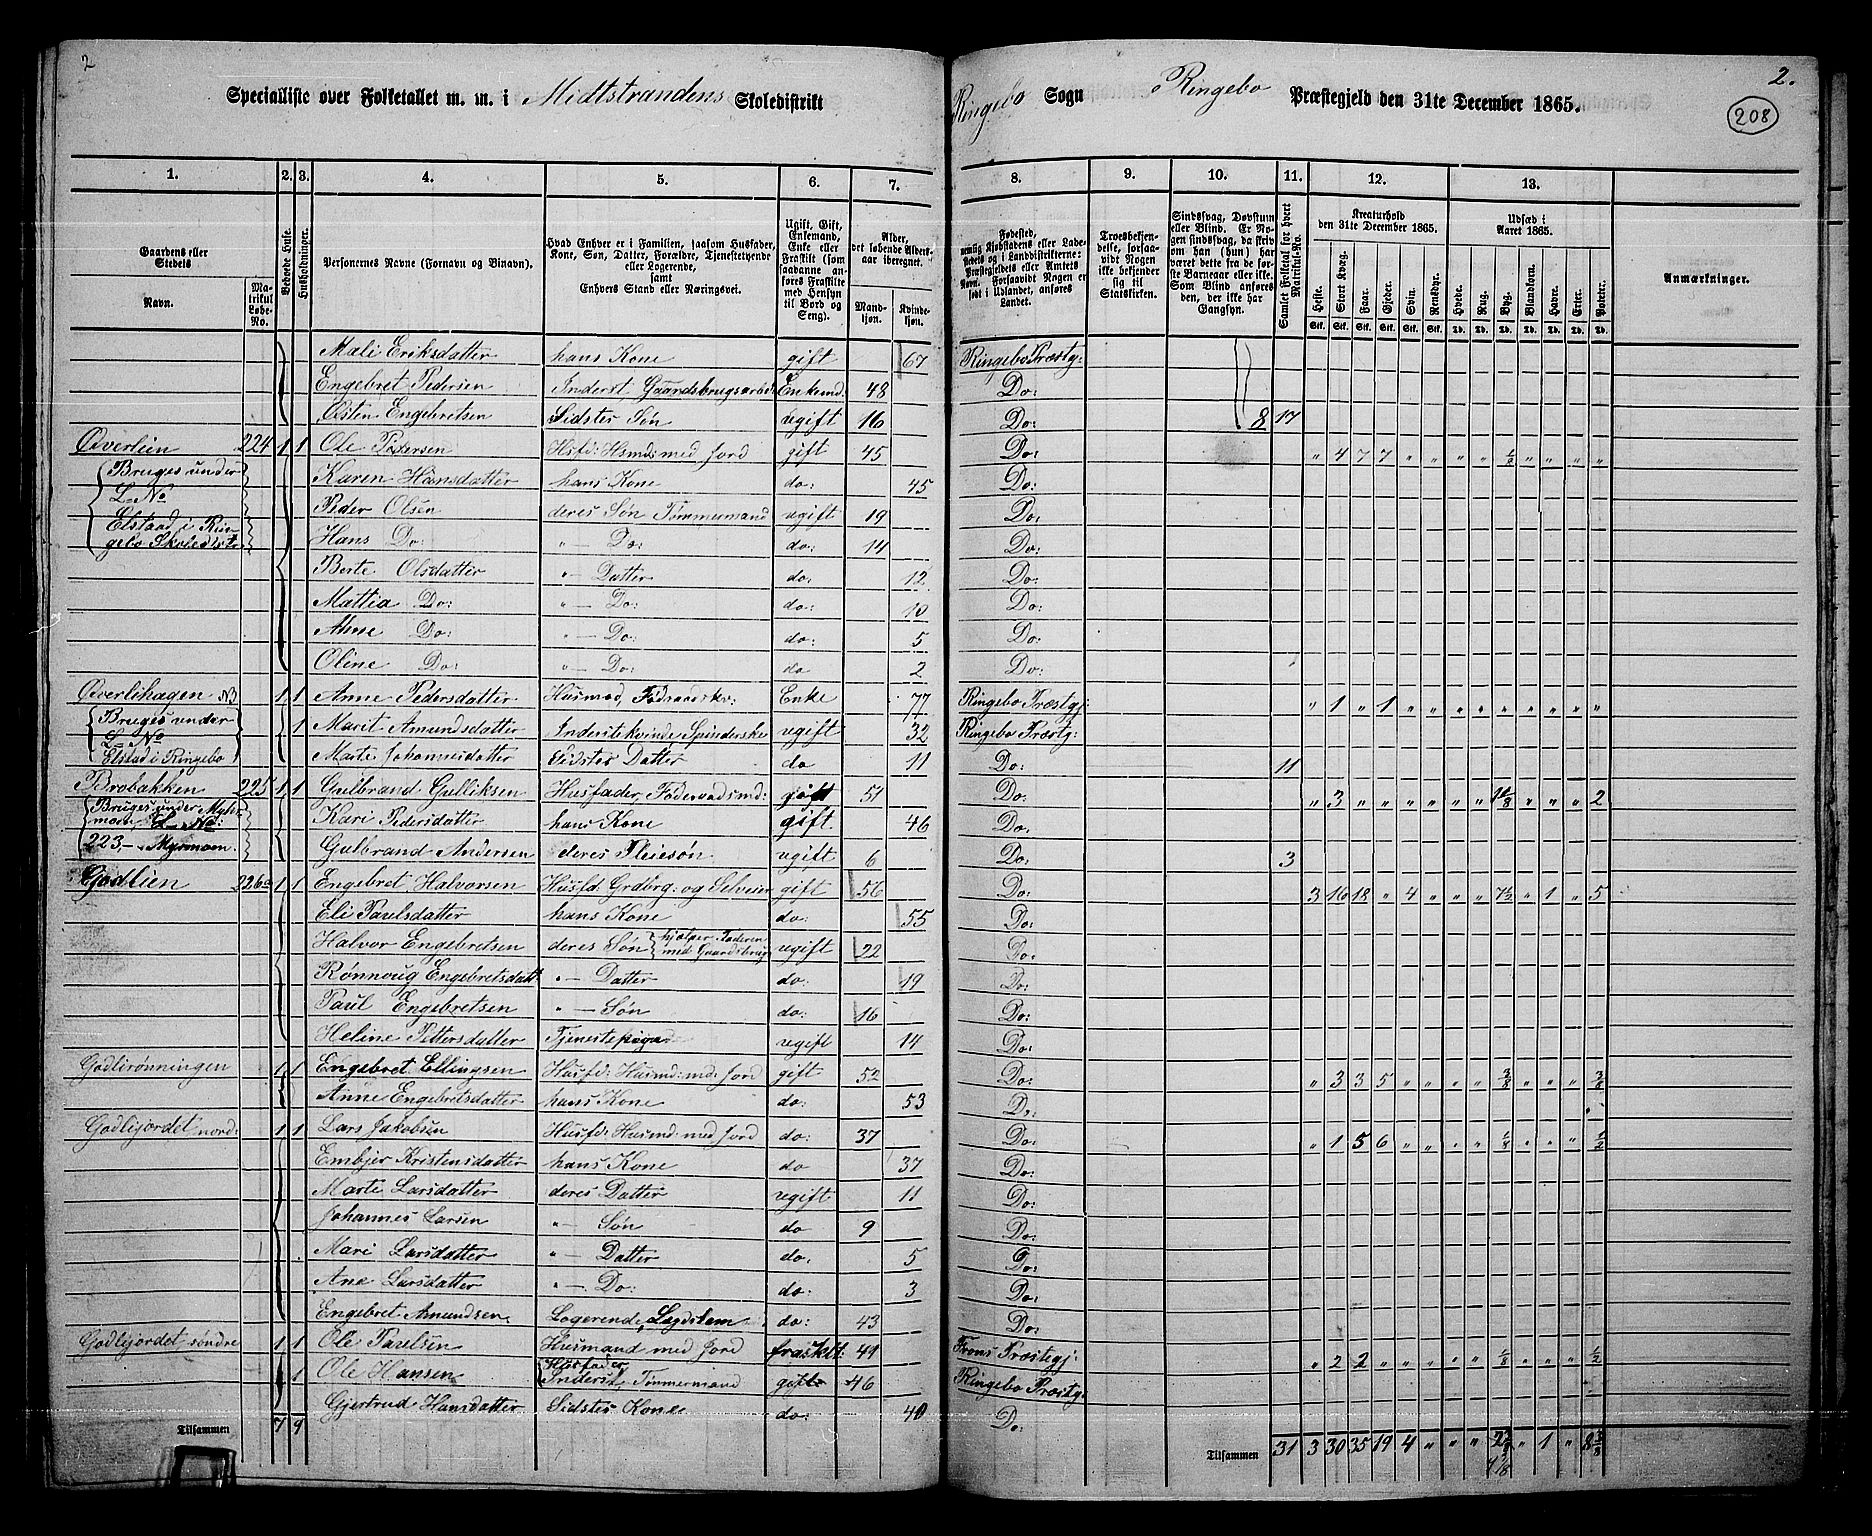 2
Specialliste over Folketallet m. m. i Midtstrandens Skoledistrikt
Ringebo Sogn Ringebo Præstegjeld den 31te December 1865.
2.
208
1. 2. 3. 4. 5. 6. 7. 8. 9. 10. 11. 12. 13.
Gaardens eller Stedets
Navn.
Matrikul Løbe-No.
Beboede Huse.
Husholdninger.
Personernes Navne (Fornavn og Binavn).
Hvad Enhver er i Familien, saasom Husfader, Kone, Søn, Datter, Forældre, Tjenestetyende eller Logerende, samt Enhvers Stand eller Næringsvei.
Ugift, Gift, Enkemand, Enke eller Fraskilt (som saadanne anføres Fraskilte med Hensyn til Bord og Seng).
Alder, det løbende Aldersaar iberegnet.
Mandkjøn. Kvindekjøn.
Fødested, nemlig Kjøbstadens eller Ladestedets og i Landdistrikterne: Præstegjeldets eller Amtets Navn. Forsaavidt Nogen er født i Udlandet, anføres Landet.
Troesbekjendelse, forsaavidt Nogen ikke bekjender sig til Statskirken.
Sindssvag, Døvstum eller Blind. Er Nogen sindssvag, da skriv om han (hun) har været dette fra de første Barneaar eller ikke. Som Blind anføres den, der ikke har Gangsyn.
Samlet Folketal for hvert Matrikul-No.
Kreaturhold den 31te December 1865.
Heste. Stort Kvæg. Faar. Gjeder. Svin. Rensdyr.
Udsæd i Aaret 1865.
Hvede. Rug. Byg. Blandkorn. Havre. Erter. Poteter.
Anmærkninger.
Mali Eriksdatter hans Kone gift 67 Ringebo Præstg:
Engebret Pedersen Inderst Gaardsbrugsarbd: Enkemd. 48 Do:
Østen Engebretsen Sidstes Søn ugift 16 Do: 8 17
Øverlien 224 1 1 Ole Pedersen Husfd: Husmd: med Jord gift 45 Do: " 4 7 7 " " " " 1/2 " " " "
Bruges under Karen Hansdatter hans Kone do: 45 Do:
L-No Peder Olsen deres Søn Tømmermand ugift 19 Do:
Elstad i Rin- Hans Do: " - Do: do: 14 Do:
gebo Skoledistr: Berte Olsdatter " - Datter do: 12 Do:
Mattia Do: " - Do: do: 10 Do:
Anne Do: " - Do: do: 5 Do:
Oline Do: " - Do: do 2 Do:
Øverlihagen N3 1 1 Anne Pedersdatter Husmod, Føderaadsko: Enke 77 Ringebo Præstgj: " 1 " 1 " " " " " " " " "
Bruges under 1 Marit Amundsdatter Inderstekvinde Spinderske ugift 32 Ringebo Præstg:
L-No
Elstad i Ringebo Marte Johannesdatter Sidstes Datter do 11 Do: 11
Brobakken 225 1 1 Gulbrand Gulliksen Husfader, Føderaadsmd: gift 51 Do: " 3 " " " " " " " " " 2
Bruges under Kari Pedersdatter hans Kone gift. 46 Do:
L-No
223, - Myrmoen. Gulbrand Andersen deres Pleiesøn ugift 6 Do: 3
Godlien 226a 1 1 Engebret Halvorsen Husfd: Grdbrg: og Selveier gift 56 Do: 3 16 18 " 4 " " " 7 1/2 " 1 " 5
Eli Paulsdatter hans Kone do: 55 Do:
Halvor Engebretsen deres Søn hjelper Faderen med Gaardsbrug ugift 22 Do:
Rønnoug Engebretsdatt: " - Datter do: 19 Do:
Paul Engebretsen " - Søn do: 16 Do:
Heline Pittersdatter Tjenestepige ugift 14 Do:
Godlirønningen 1 1 Engebret Ellingsen Husfd: Husmd: md: Jord gift 52 Do: " 3 3 5 " " " " 3/8 " " " 3/8
Anne Engebretsdatter hans Kone do: 53 Do:
Godlijordet nord: 1 1 Lars Jakobsen Husfd: Husmd: med Jord do: 37 Do: " 1 5 6 " " " " 1/8 " " " 1/2
Embjer Kristensdatter hans Kone do 37 Do:
Marte Larsdatter deres Datter ugift 11 Do:
Johannes Larsen " - Søn do 9 Do:
Mari Larsdatter " - Datter do. 5 Do:
Ane Larsdatter " - Do: do: 3 Do:
Engebret Amundsen Logerende, Lægdslem do: 43 Do:
Godlijordet søndre 1 1 Ole Paulsen Husmand med Jord fraskilt: 41 Frons Præstegj: " 2 2 " " " " " 1/8 " " " 1/2
1 Ole Hansen Husfader Inderst, Tømmermand gift 46 Ringebo Præstg:
Gjertrud Hansdatter Sidstes Kone do: 40 Do:
Tilsammen 7 9 Tilsammen 31 3 30 35 19 4 " " " " 1 " 8 3/8